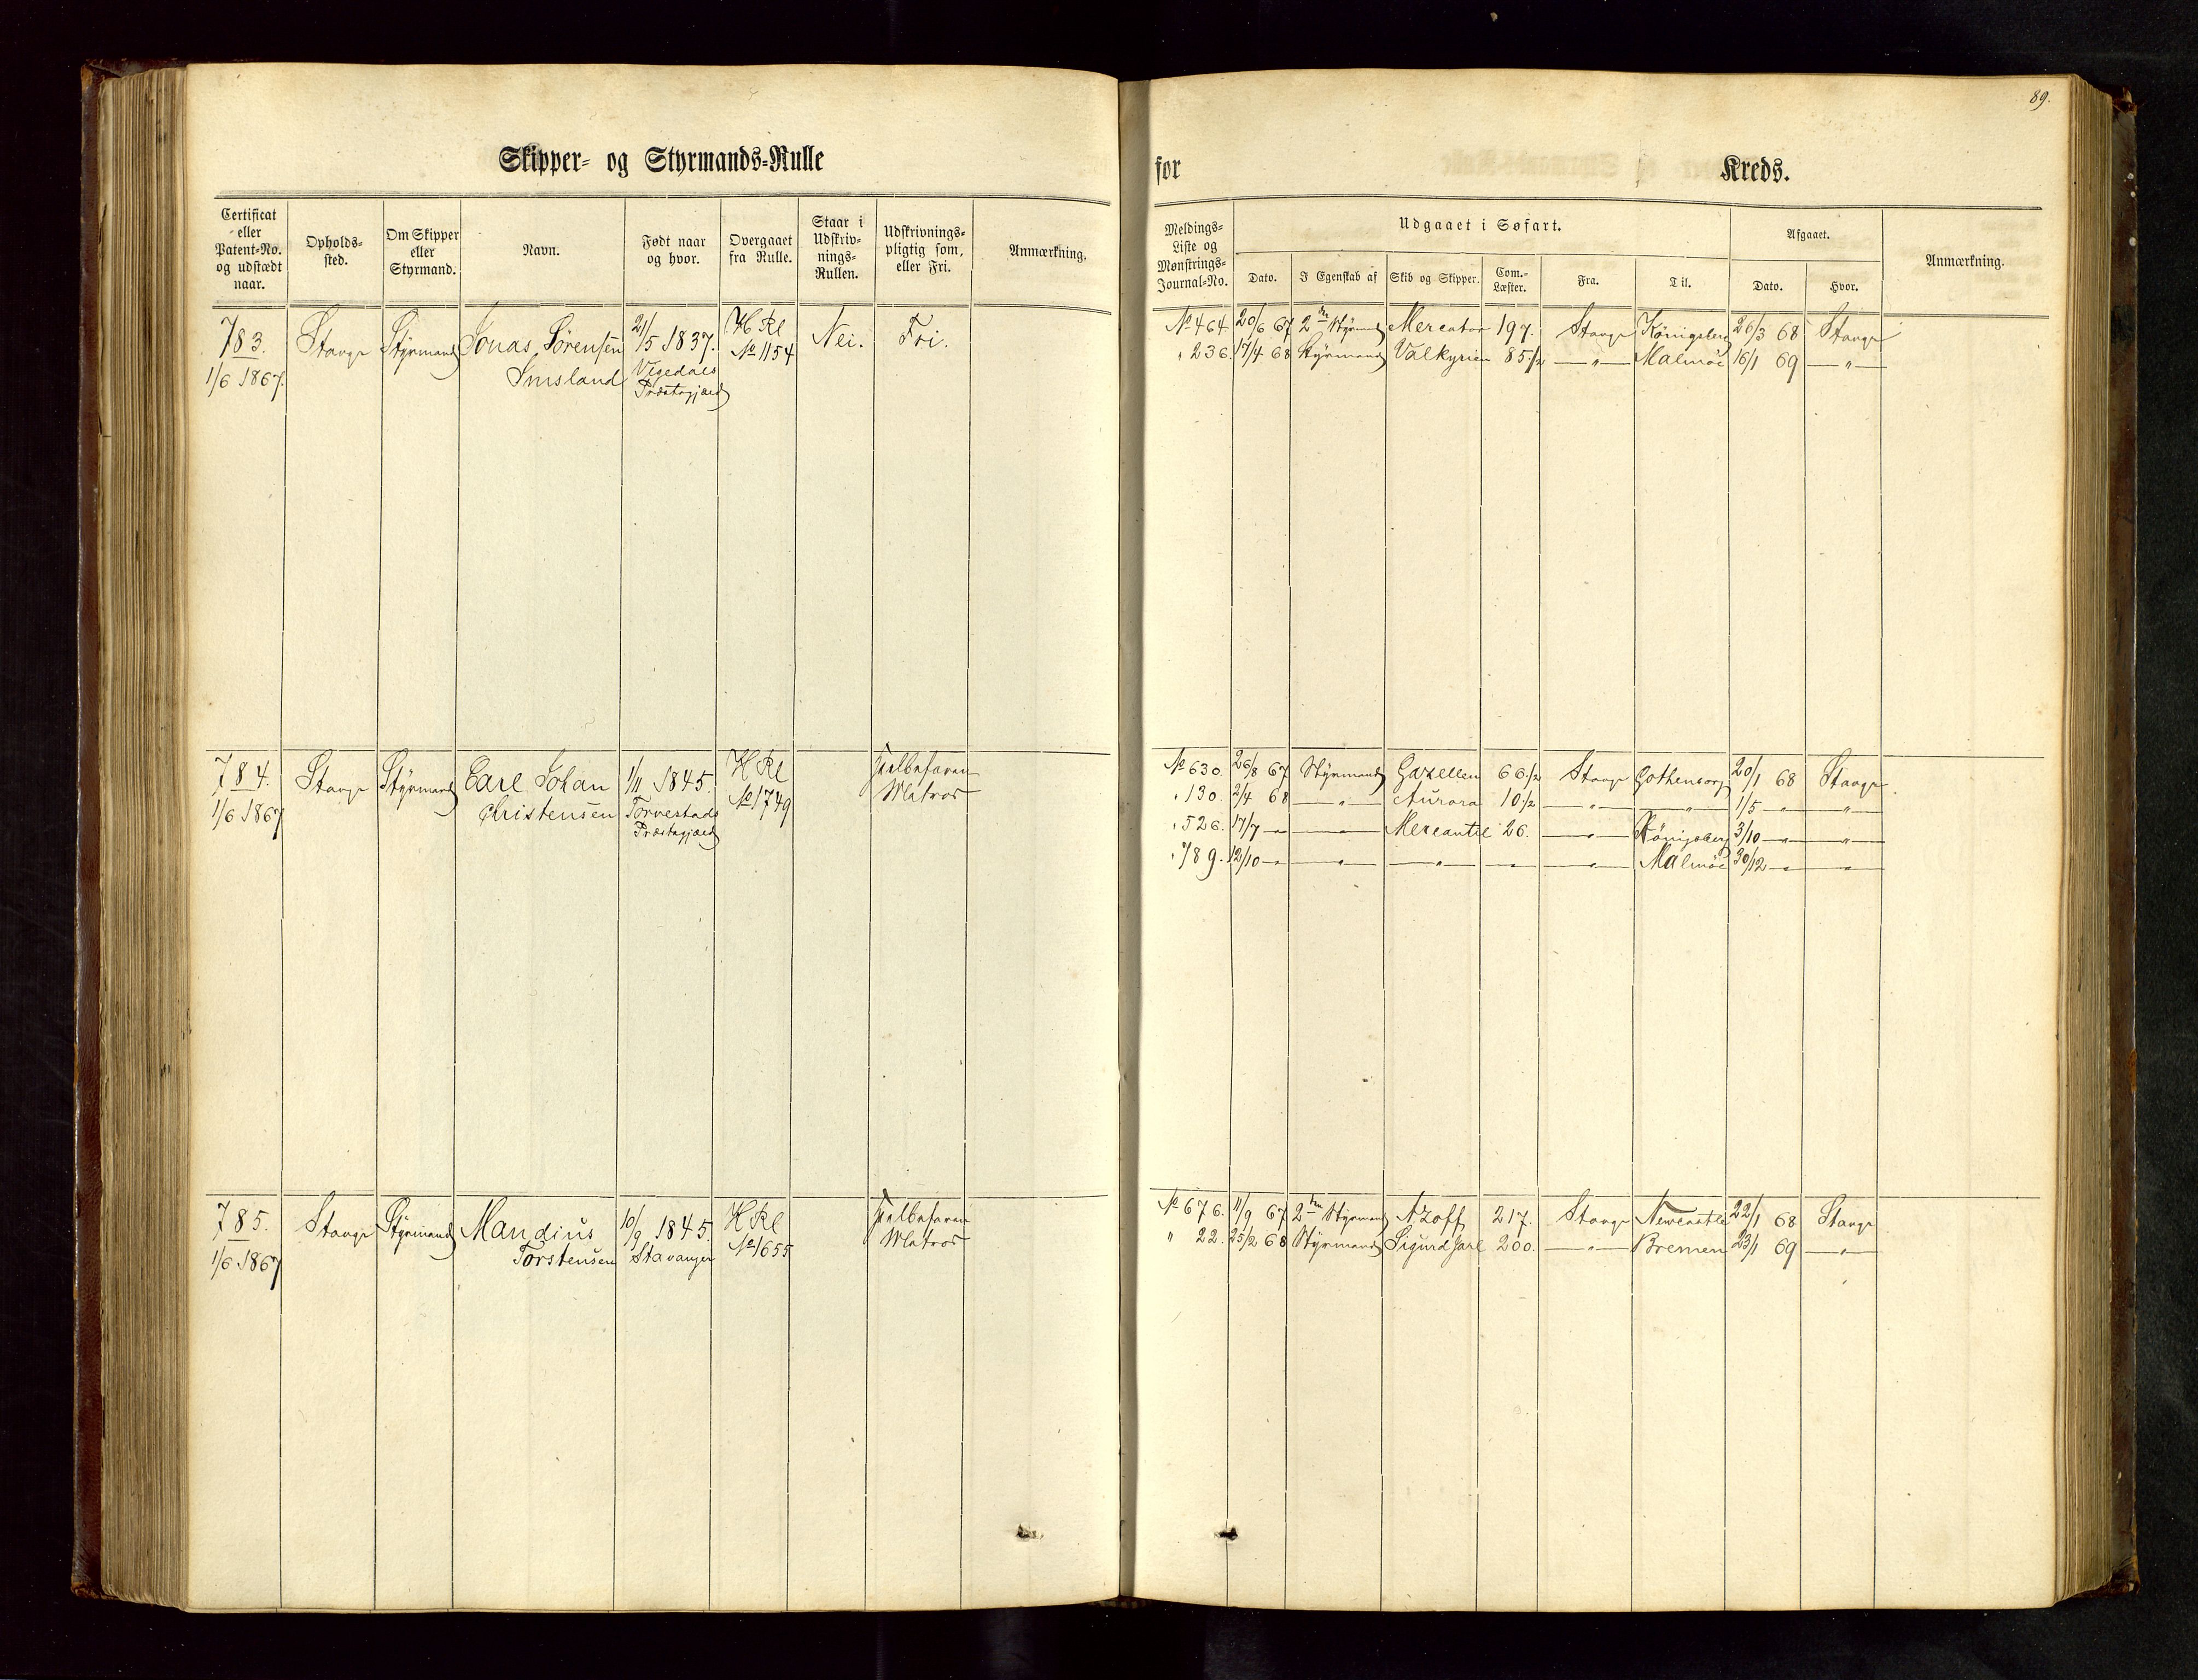 89.
Skipper- og Styrmands-Rulle
for Kreds.
Certificat eller Patent-No. og udstædt naar.
Opholds-sted.
Om Skipper eller Styrmand.
Navn.
Født naar og hvor.
Overgaaet fra Rulle.
Staar i Udskriv-nings-Rullen.
Udskrivnings-pligtig som, eller Fri.
Anmærkning.
Meldings-Liste og Mønstrings-Journal-No.
Udgaaet i Søfart.
Dato.
I Egenskab af
Skib og Skipper.
Com.-Læster.
Fra.
Til.
Afgaaet.
Dato.
Hvor.
Anmærkning.
783. Stavgr Styrmand Jonas Sørensen 21/5 1837. HRl Nei. Fri.
1/6 1867. Imsland Vigedals No 1154
Præstegjæld
No 464 20/6 67 2den Styrmd Mercator 197. Stavgr Königsberg 26/3 68 Stavgr
" 236. 17/4 68 Styrmand Valkyrien 85 1/2 —"— Malmöe 16/1 69 —"—
784. Stavgr Styrmand Carl Johan 1/11 1845. HRl Halvbefaren
1/6 1867 Christensen Torvestads No 1749 Matros
Præstegjæld
No 630. 26/8 67 Styrmand Gazellen 66 1/2 Stavgr Gothenborg 20/1 68 Stavgr.
" 130. 2/4 68 —"— Aurora 10 1/2 —"— —"— 1/5 —"— —"—
" 526. 17/7 —"— —"— Mercantil 26. —"— Königsberg 3/10 —"— —"—
" 789. 12/10 —"— —"— —"— —"— —"— Malmöe 30/12 —"— —"—
785. Stavgr Styrmand Mandius 10/9 1845. HRl Halvbefaren
1/6 1867 Torstensen Stavanger No 1655 Matros
No 676. 11/9 67 2den Styrmand Azoff 217. Stavgr Newcastle 22/1 68 Stavgr
" 22. 25/2 68 Styrmand Sigurd Jarl 200. —"— Bremen 23/1 69 —"—